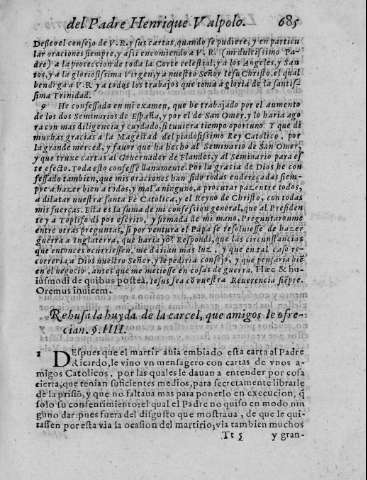 del Padre Henrique Valpolo. 685
Desseo el consejo de V.R. y sus cartas, quando se pudiere, y en particu
lar oraciones siempre, y assi encomiendo a V. R. (mi dulcissimo Pa-
dre) a la proteccion de toda la Corte celestial, y a los Angeles, y San
tos, y a la gloriosissima Virgen, y a nuestro Señor Iesu Christo, el qual
bendiga a V.R. y a todos los trabajos que toma à gloria de la santis-
sima Trinidad.
9 He confessado en mi examen, que he trabajado por el aumento
de los dos Seminarios de España, y por el de San Omer, y lo haria ago
ra con mas diligencia y cuydado, si tuuiera tiempo oportuno. Y que di
muchas gracias a la Magestad del piadosissimo Rey Catolico, por
la grande merced, y fauor que ha hecho al Seminario de San Omer,
y que truxe cartas al Gouernador de Flandes, y al Seminario para es
te efecto. Todo esto confessè llanamente. Por la gracia de Dios he con
fessado tambien, que mis oraciones han sido todas endereçadas siem-
pre a hazer bien a todos, y mal a ninguno, a procurar paz entre todos,
a dilatar nuestra santa Fè Catolica, y el Reyno de Christo, con todas
mis fuerças. Esta es la suma de mi confession general, que al Presiden
te y a Topliso di por escrito, y firmada de mi mano. Preguntaronme
entre otras preguntas, si por ventura el Papa se resoluiesse de hazer
guerra a Inglaterra, que haria yo? Respondi, que las circunstancias
que entonces ocurriessen, me darian mas luz, y que en tal caso re-
correria a Dios nuestro Señor, y le pediria consejo, y que pensaria biē
en el negocio, antes que me metiesse en cosas de guerra. Hæc & hu-
iusmodi de quibus postea. Iesus sea cō nuestra Reuerencia siēpre.
Oremus inuicem.
Rehusa la huyda de la carcel, que amigos le ofre-
cian. §. IIII.
1 Despues que el martir auia embiado esta carta al Padre
Ricardo, le vino vn mensagero con cartas de vnos a-
migos Catolicos, por las quales le dauan a entender por cosa
cierta, que tenian suficientes medios, para secretamente librarle
de la prisiō, y que no faltaua mas para ponerlo en execucion, q̃
solo su consentimiento: el qual el Padre no quiso en modo nin
guno dar pues fuera del disgusto que mostraua, de que le qui-
tassen por esta via la ocasion del martirio, via tambien muchos
Tt 5 y gran-